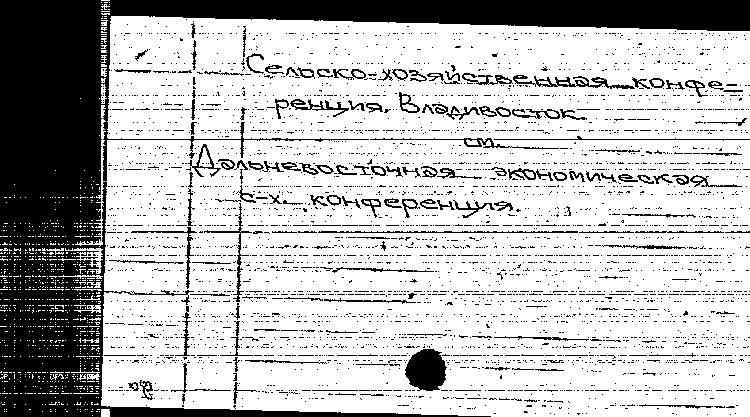 Сельско-хозяйственная конфе-
ренция. Владивосток.
см.
Дальневосточная экономическая
с-х. конференция.